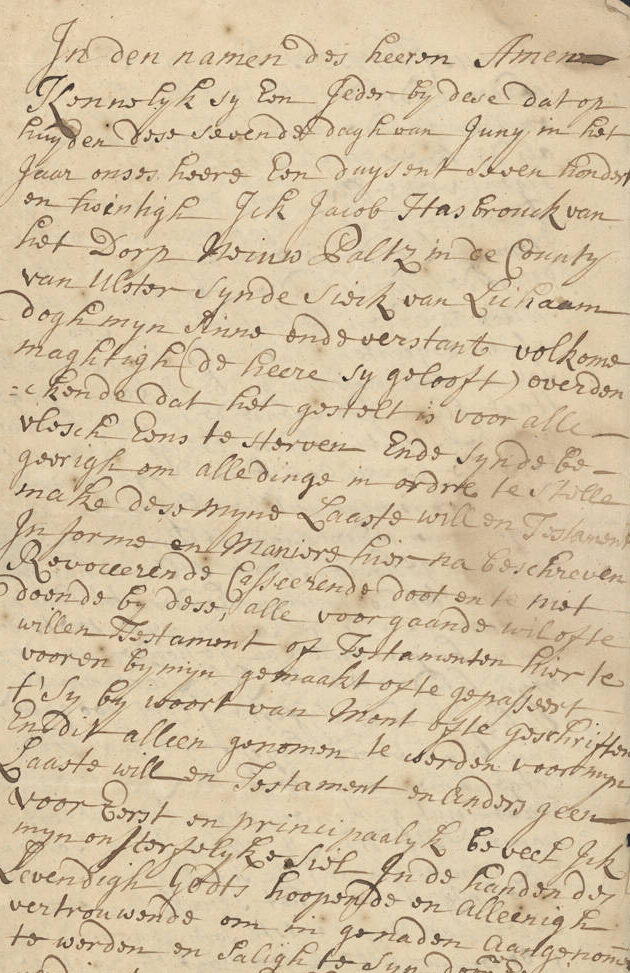 In den namen des heeren Amen
Kennelyk sy Een Jeder by dese dat op
huyden dese sevende dagh van Juny in het
Jaar onses heere Een duysent seven hondert
en twintigh Ick Jacob Hasbrouck van
het Dorp Nieuw Paltz in de County
van Ulster synde Sieck van Lichaam
dogh myn Sinne ende verstant volkome
maghtigh (de heere sy gelooft) overden
=ckende dat het gestelt is voor alle
vlesch Eens te sterven Ende synde be-
geerigh om alle dinge in ordre te stelle
make dese myne Laaste will en Testament
In forme en Maniere hier na beschreven
Revocerende Casseerende doot en te niet
doende by dese, alle voorgaande wil ofte
willen Testament of Testamenten hier te
vooren by mijn gemaakt ofte gepasseert
t'Sy by woort van Mont ofte geschriften
En dit alleen genomen te werden voor myn
Laaste will en Testament en Anders geen
Voor Eerst en principaalyk beveel Ick
myn onsterfelyke Siel In de handen des
Levendigh Godts hoopende en Alleenigh
vertrouwende om in genaden Aangenome
te werden en Saligh te syn door